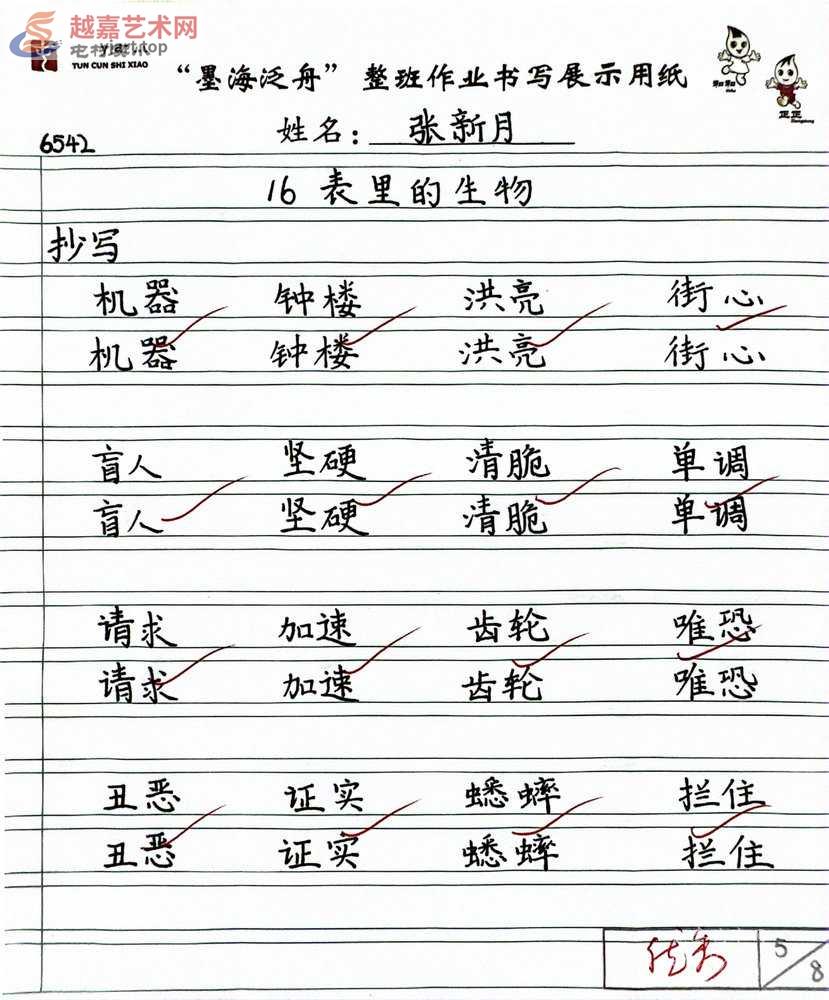 越嘉艺术网
yjart.top
TUN CUN SHI XIAO
“墨海泛舟”整班作业书写展示用纸
6542
姓名:张新月
16 表里的生物
抄写
机器 钟楼 洪亮 街心
机器 钟楼 洪亮 街心
盲人 坚硬 清脆 单调
盲人 坚硬 清脆 单调
请求 加速 齿轮 唯恐
请求 加速 齿轮 唯恐
丑恶 证实 蟋蟀 拦住
丑恶 证实 蟋蟀 拦住
优秀 5/8